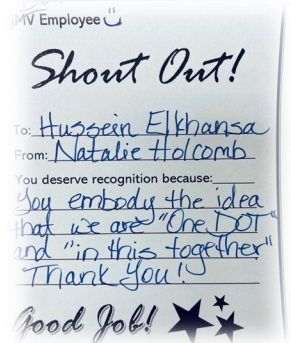 MV Employee
Shout Out!
To: Hussein Elkhansa
From: Natalie Holcomb
You deserve recognition because:
You embody the idea
that we are "One DOT"
and "in this together"
Thank You!
Good Job!